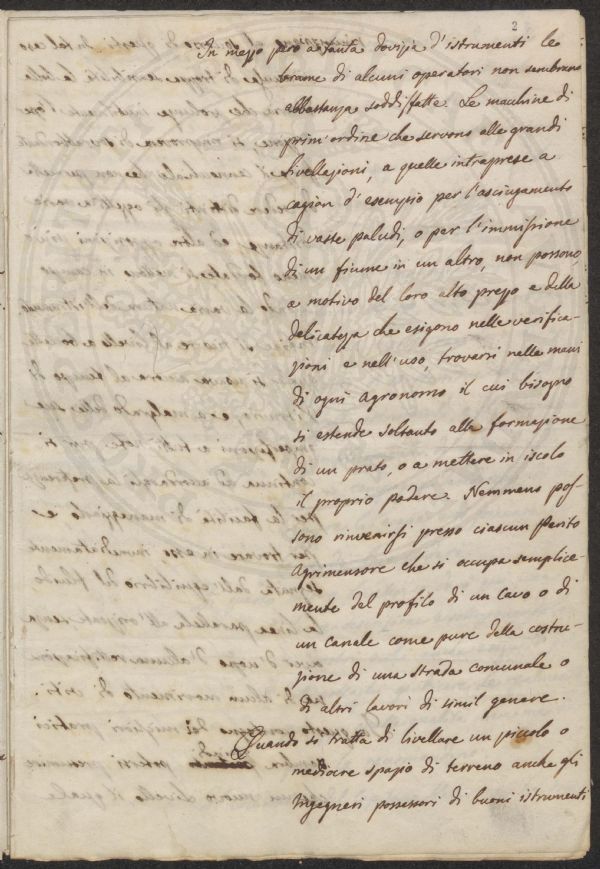 2
In mezzo però a tanta dovizia d'istrumenti le
brame di alcuni operatori non sembrano
abbastanza soddisfatte. Le macchine di
prim'ordine che servono alle grandi
livellazioni, a quelle intraprese a
cagion d'esempio per l'asciugamento
di vaste paludi, o per l'immissione
di un fiume in un altro, non possono
a motivo del loro alto prezzo e della
delicatezza che esigono nelle verifica-
zioni e nell'uso, trovarsi nelle mani
di ogni Agronomo il cui bisogno
si estende soltanto alla formazione
di un prato, o a mettere in iscolo
il proprio podere. Nemmeno pos-
sono rinvenirsi presso ciascun Perito
Agrimensore che si occupa semplice-
mente del profilo di un Cavo o di
un Canale come pure della costru-
zione di una strada comunale o
di altri lavori di simil genere.
Quando si tratta di livellare un piccolo o
mediocre spazio di terreno anche gli
Ingegneri possessori di buoni istrumenti